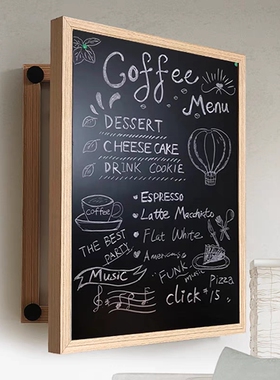 Coffee
Menu
DESSERT
CHEESE CAKE
DRINK COOKIE
ESPRESSO
Latte Macchiato
Flat White
Americano
coffee
THE BEST
PARTY
FUNK
music
Pizza
Music
click #15